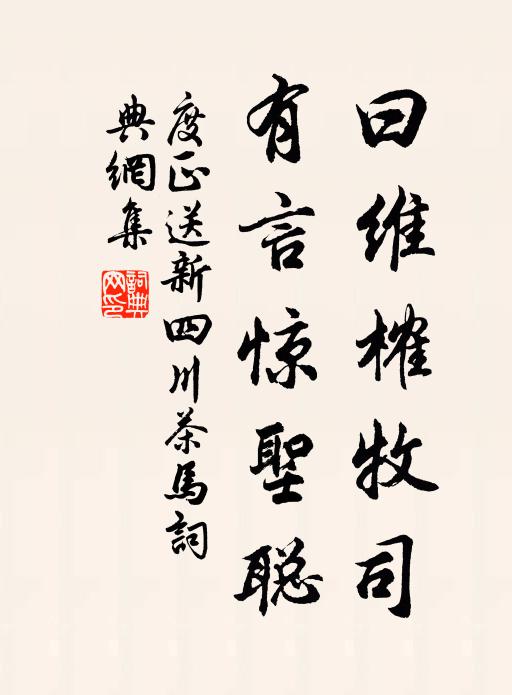 曰维榷牧司
有言惊聖聪
度正送新四川茶馬詞
典網集
詞典网印